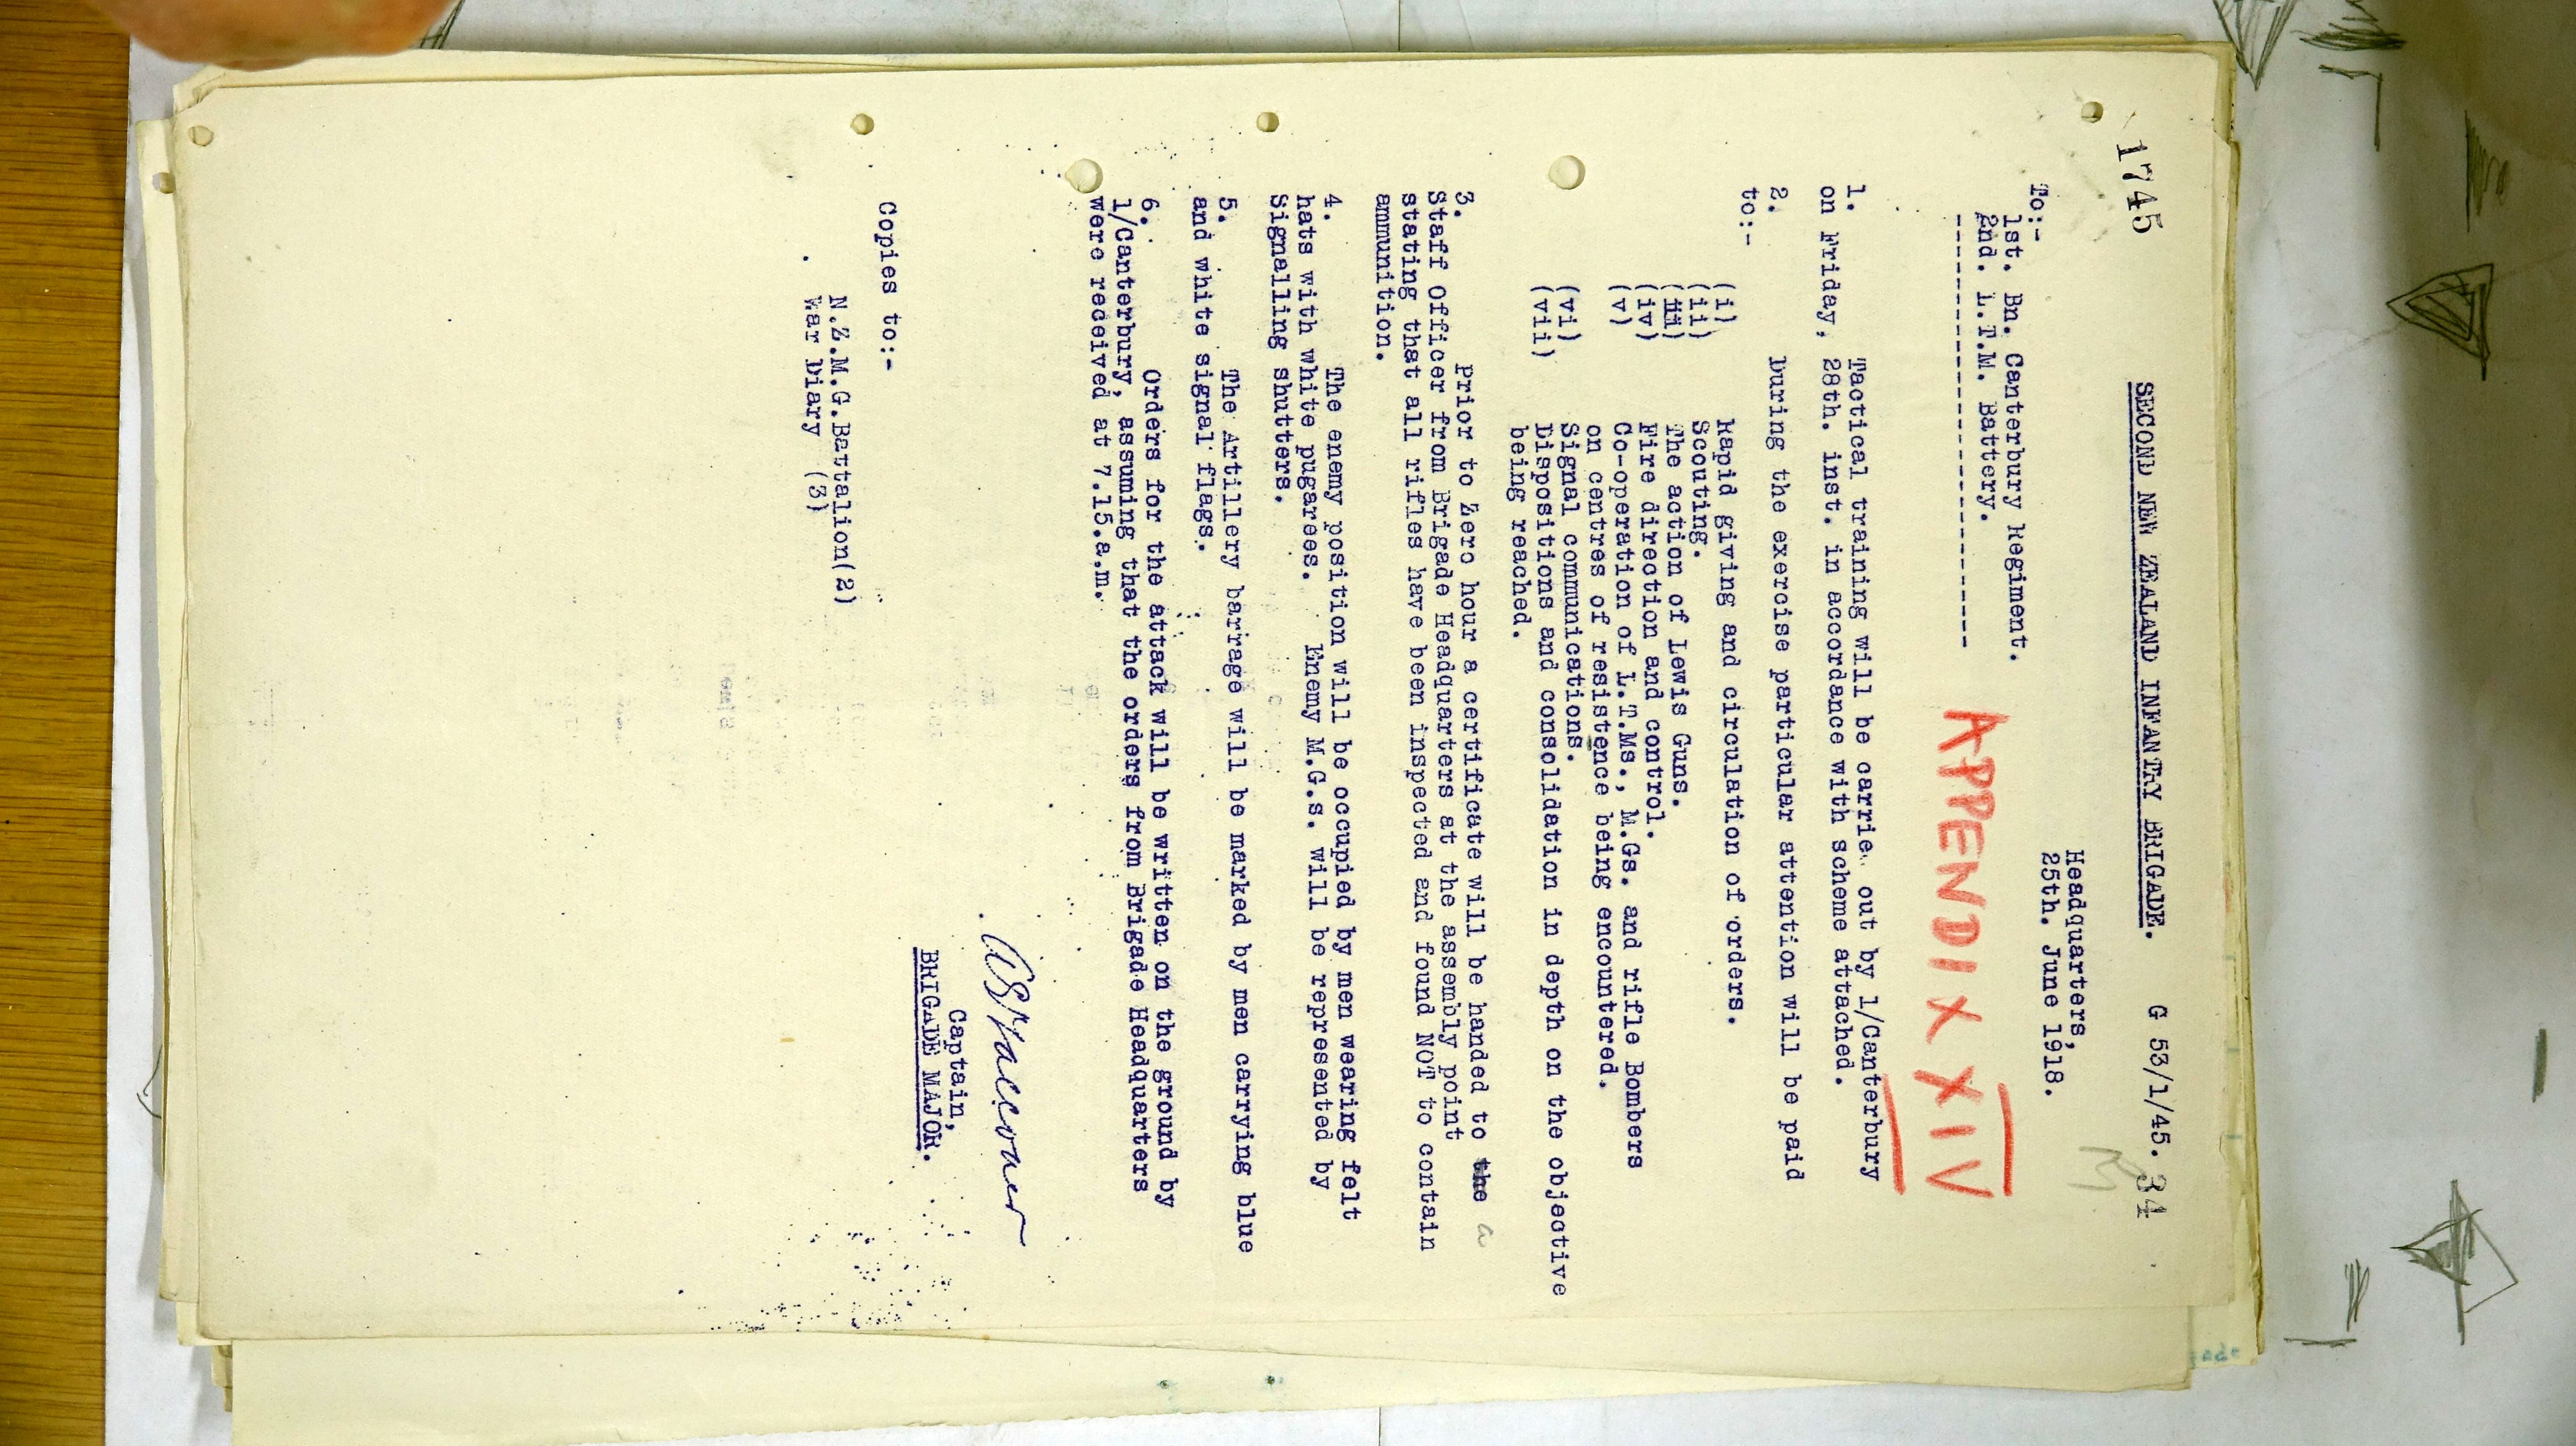 1745
SECOND NEW ZEALAND INFANTRY BRIGADE. G 53/1/45. 34
Headquarters,
25th. June 1918.
To:-
1st. Bn. Canterbury Regiment.
2nd. L.T.M. Battery.
APPENDIX XXIV
1. Tactical training will be carrie out by 1/Canterbury
on Friday, 28th. inst. in accordance with scheme attached.
2. During the exercise particular attention will be paid
to:-
(i) Rapid giving and circulation of orders.
(ii) Scouting.
(iii) The action of Lewis Guns.
(iv) Fire direction and control.
(v) Co-operation of L.T.Ms., M.Gs. and rifle Bombers
on centres of resistence being encountered.
(vi) Signal communications.
(vii) Dispositions and consolidation in depth on the objective
being reached.
3. Prior to Zero hour a certificate will be handed to the a
Staff Officer from Brigade Headquarters at the assembly point
stating that all rifles have been inspected and found NOT to contain
ammunition.
4. The enemy position will be occupied by men wearing felt
hats with white pugarees. Enemy M.G.s. will be represented by
Signalling shutters.
5. The Artillery barrage will be marked by men carrying blue
and white signal flags.
6. Orders for the attack will be written on the ground by
1/Canterbury, assuming that the orders from Brigade Headquarters
were received at 7.15.a.m.
Captain,
BRIGADE MAJOR.
Copies to:-
N.Z.M.G.Battalion(2)
War Diary (3)